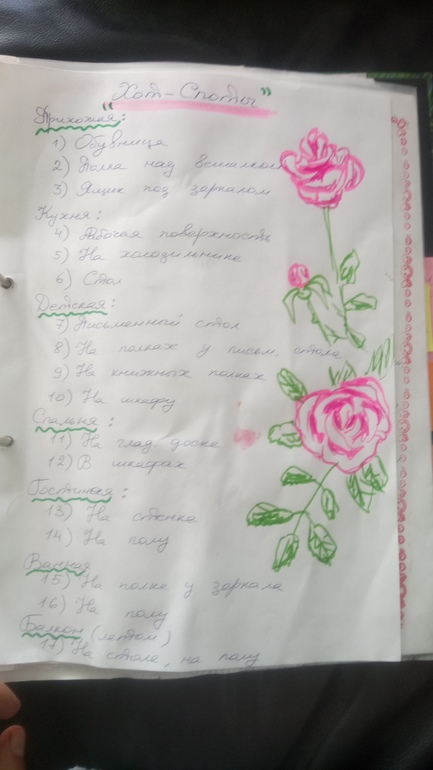 "Хот-Споты"
Прихожая:
1) Обувница
2) Полка над вешалкой
3) Ящик под зеркалом
Кухня:
4) Рабочая поверхность
5) На холодильнике
6) Стол
Детская:
7) Письменный стол
8) На полках у письм. стола
9) На книжных полках
10) На шкафу
Спальня:
11) На глад доске
12) В шкафах
Гостиная:
13) На стенке
14) На полу
Ванная
15) На полке у зеркала
16) На полу
Балкон (летом)
17) На столе, на полу